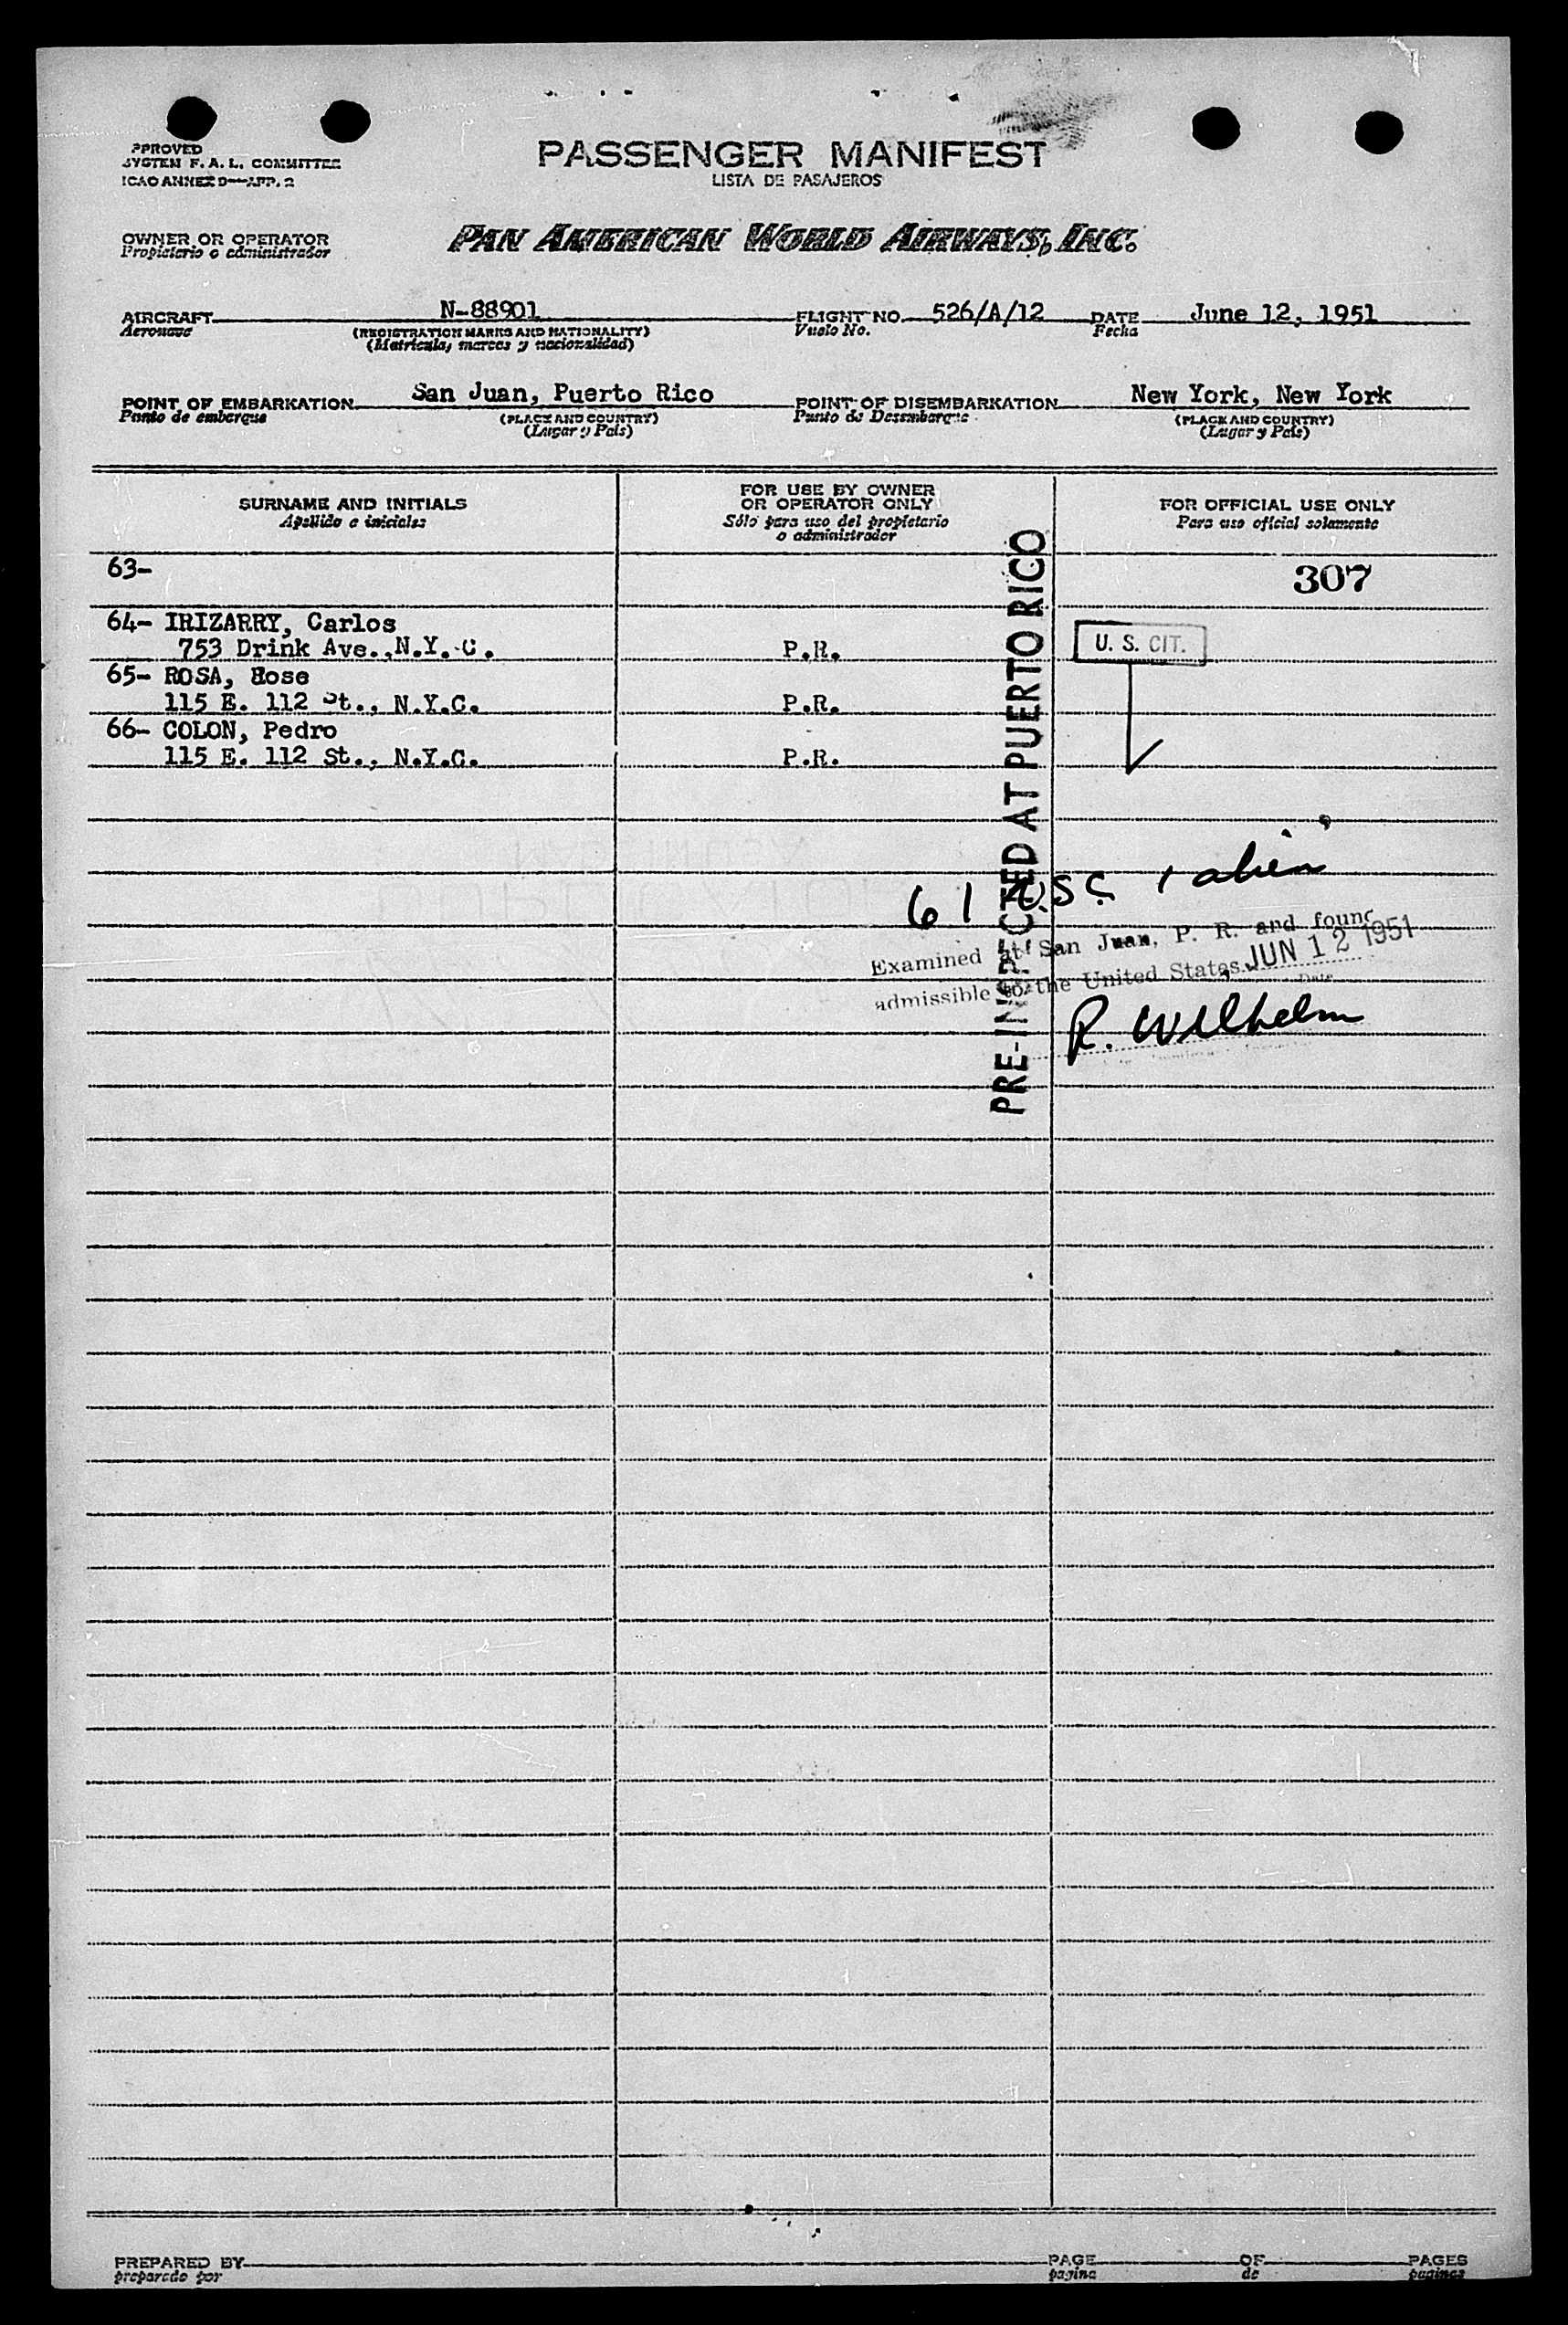 PPROVED
SYSTEM F. A. L. COMMITTEE
ICAO ANNEX 9—APP. 2
PASSENGER MANIFEST
LISTA DE PASAJEROS
OWNER OR OPERATOR
Propietario o administrador
PAN AMERICAN WORLD AIRWAYS, INC.
AIRCRAFT N-88901 FLIGHT NO. 526/A/12 DATE June 12, 1951
Aeronave (REGISTRATION MARKS AND NATIONALITY) Vuelo No. Fecha
(Matricula, marcas y nacionalidad)
POINT OF EMBARKATION San Juan, Puerto Rico POINT OF DISEMBARKATION New York, New York
Punto de embarque (PLACE AND COUNTRY) Punto de Desembarque (PLACE AND COUNTRY)
(Lugar y País) (Lugar y País)
SURNAME AND INITIALS
Apellido e iniciales
FOR USE BY OWNER
OR OPERATOR ONLY
Sólo para uso del propietario
o administrador
FOR OFFICIAL USE ONLY
Para uso oficial solamente
63-
307
64- IRIZARRY, Carlos
753 Drink Ave., N.Y. C. P.R. U. S. CIT.
65- ROSA, Rose
115 E. 112 St., N.Y.C. P.R.
66- COLON, Pedro
115 E. 112 St., N.Y.C. P.R.
PRE-INSPECTED AT PUERTO RICO
61 USC 1 alien
Examined at San Juan, P. R. and found
admissible to the United States JUN 12 1951
Date
R. Wilhelm
PREPARED BY PAGE OF PAGES
preparado por pagina de paginas